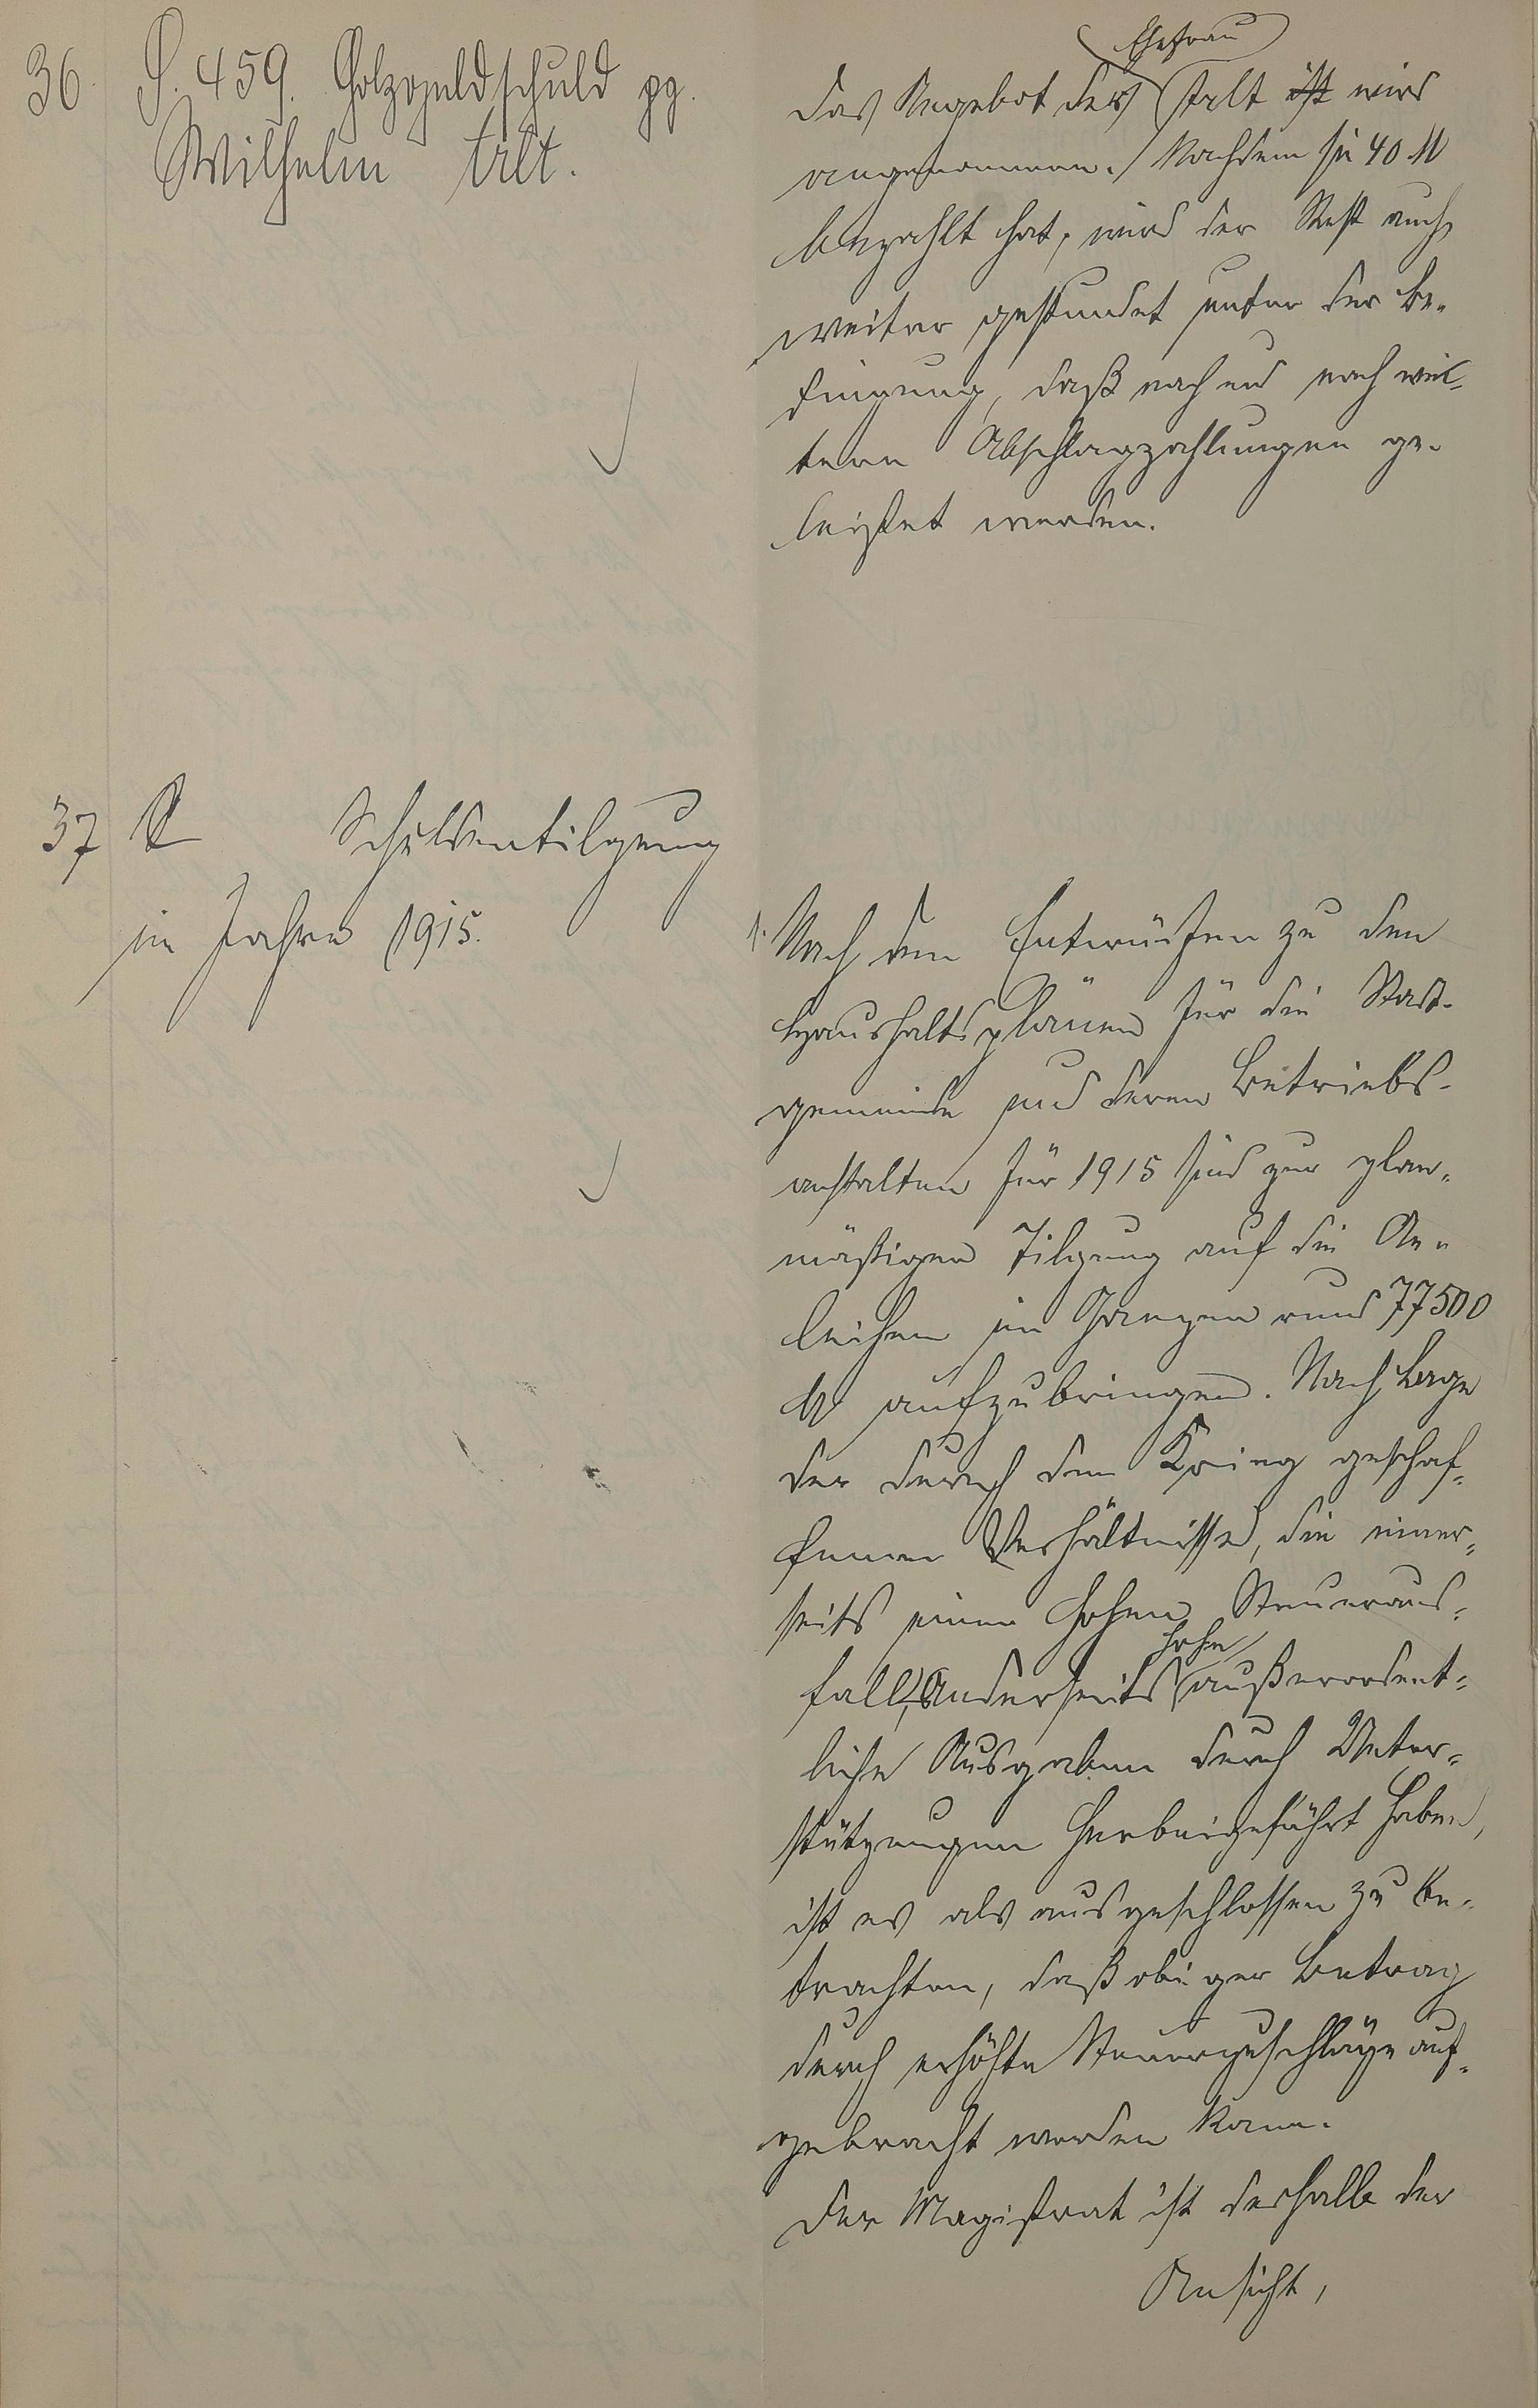 36. S. 459. Holzgeldschuld gg.
Wilhelm Alt.
Ehefrau
Das Angebot der Alt ist wird
angenommen. Nachdem sie 40 M
bezahlt hat, wird der Rest auch
weiter gestundet unter der Be-
dingung, daß nach und nach wei-
tere Abschlagzahlungen ge-
leistet werden.
37 Schuldentilgung
im Jahre 1915.
1. Nach den Entwürfen zu den
Haushaltsplänen für die Stadt-
gemeinde und deren Betriebs-
anstalten für 1915 sind zur plan-
mäßigen Tilgung auf die An-
leihen im Ganzen rund 77500
M aufzubringen. Nach Lage
der durch den Krieg geschaf-
fenen Verhältnisse, die einer-
seits einen hohen Steueraus-
hohe
fall, anderseits außerordent-
liche Ausgaben durch Unter-
stützungen herbeigeführt haben,
ist es als ausgeschlossen zu be-
trachten, daß obiger Betrag
durch erhöhte Steuerzuschläge auf-
gebracht werden kann.
Der Magistrat ist deshalb der
Ansicht,